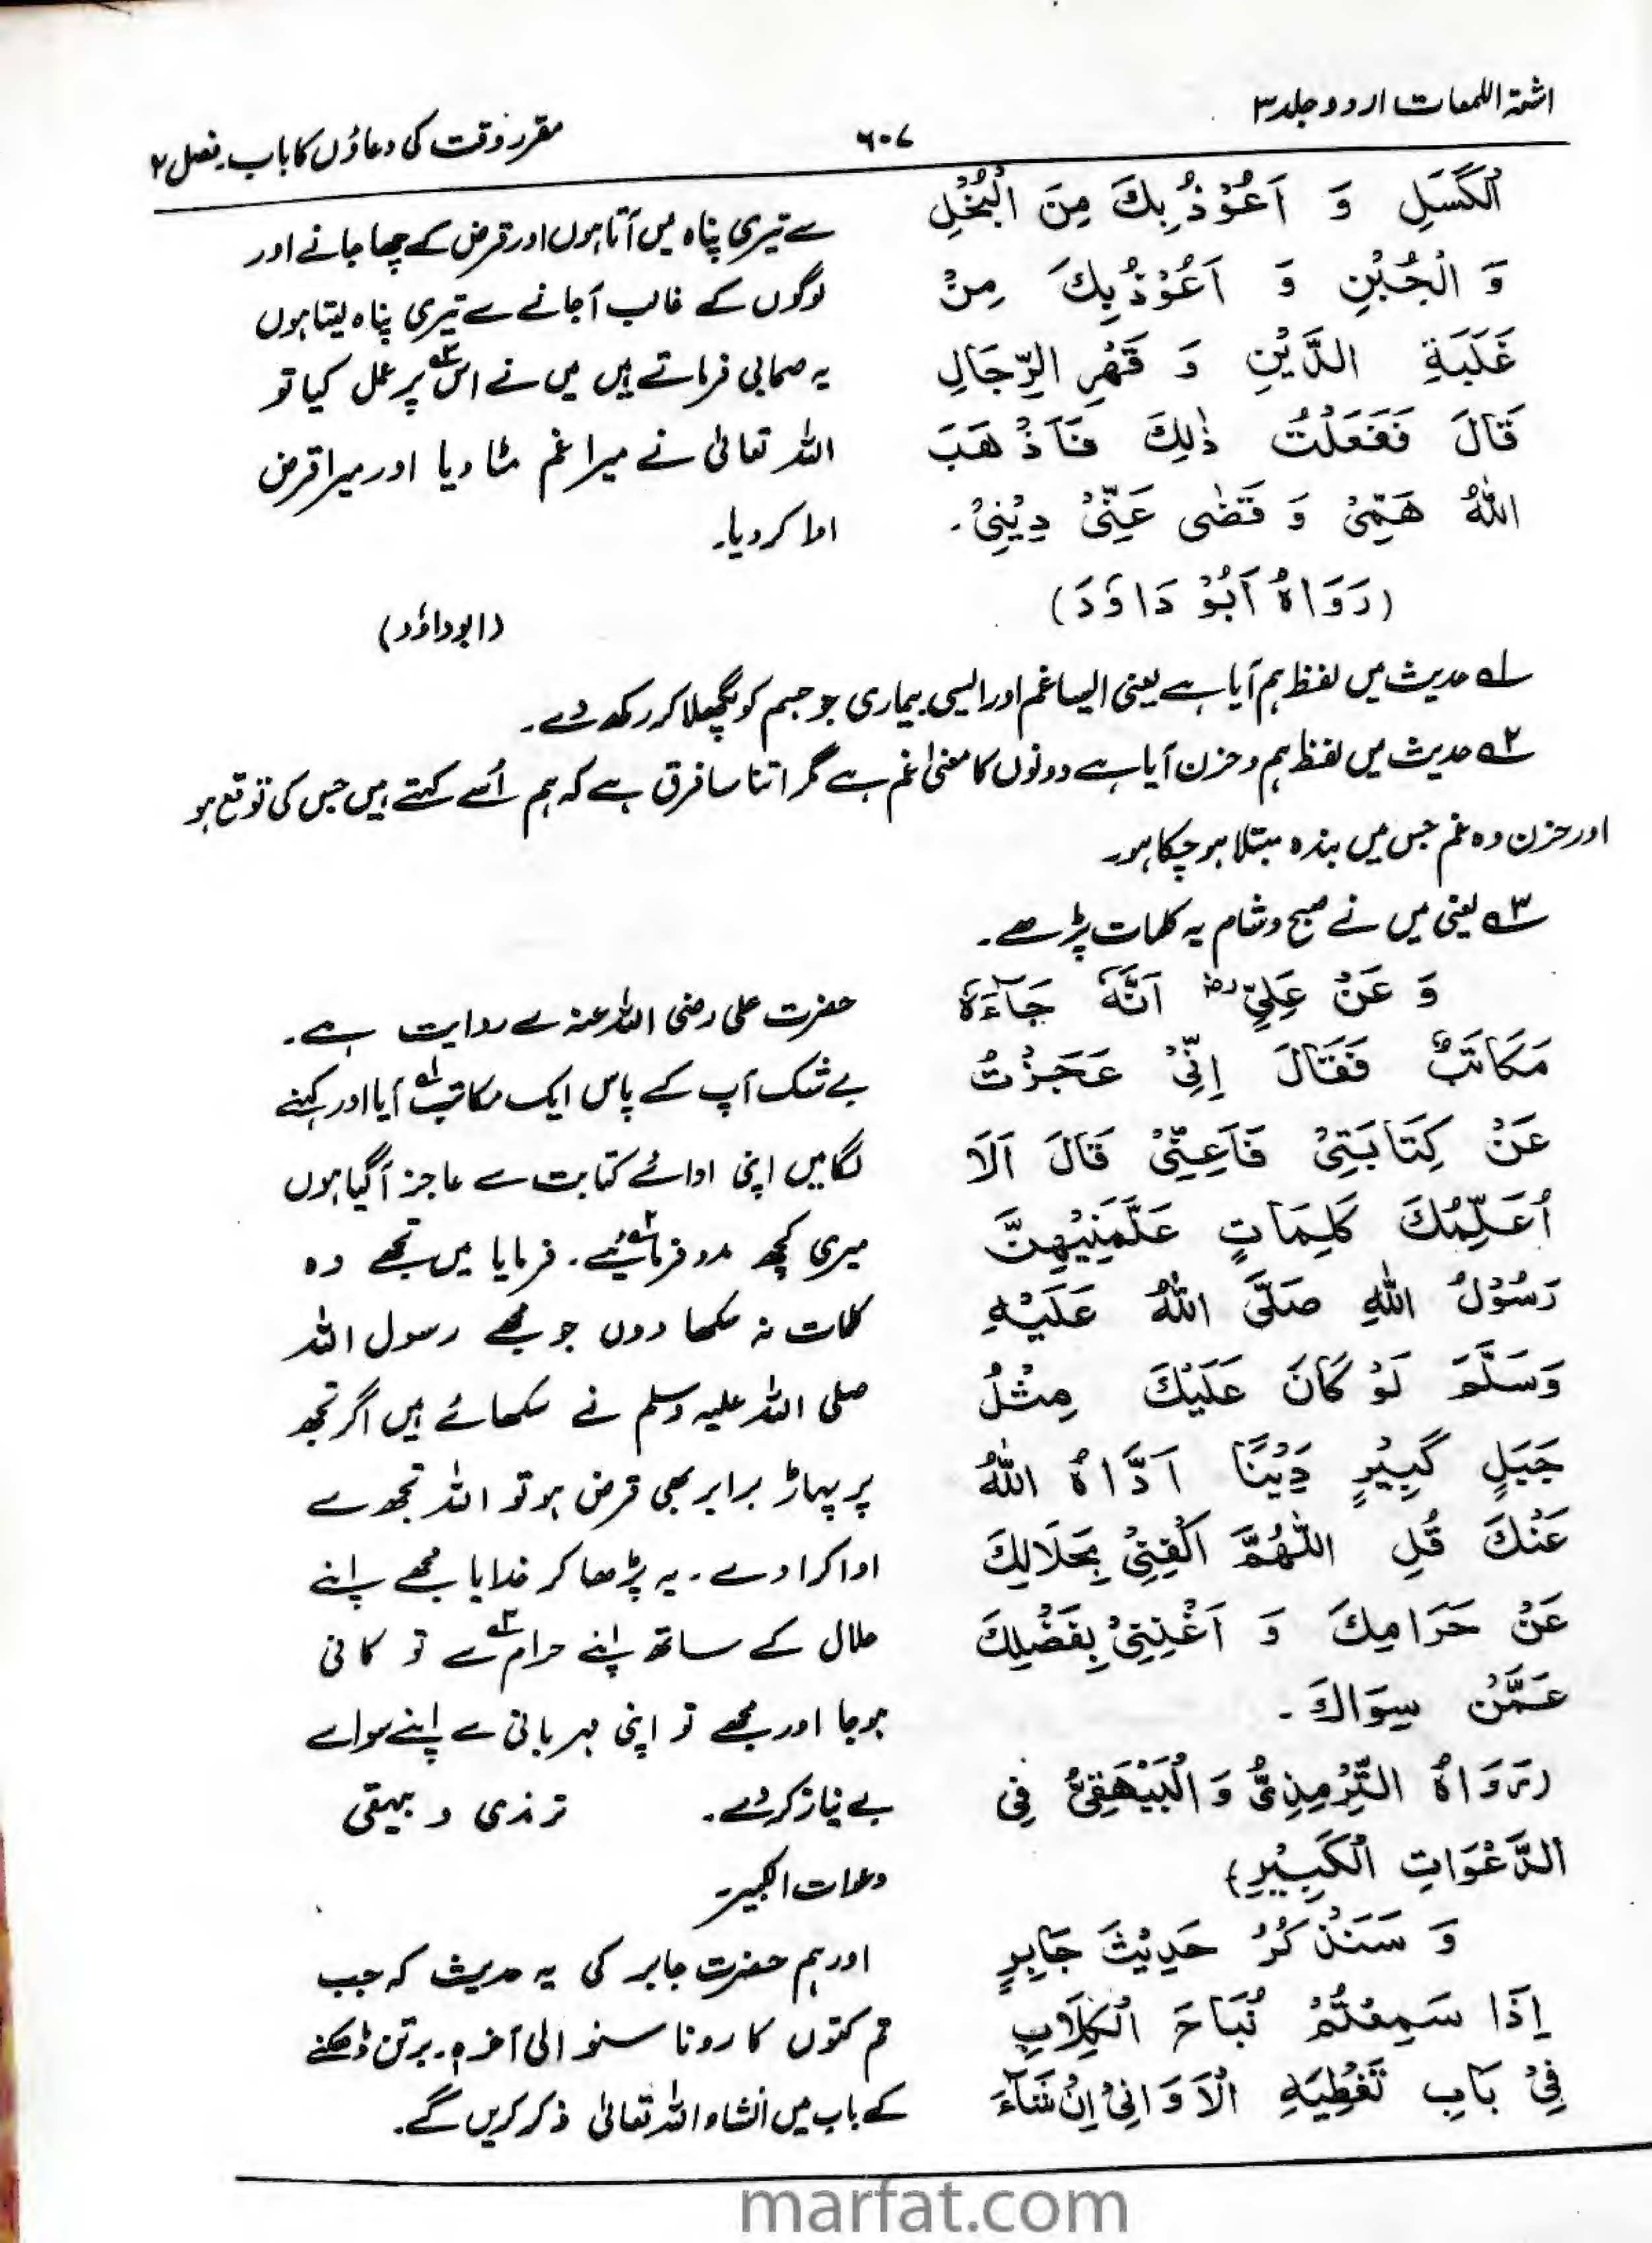 اشعۃ اللمعات اردو جلد ۳
۶۰۷
مقرر وقت کی دعاؤں کا باب۔ فصل ۲
الْكَسَلِ وَ اَعُوْذُ بِكَ مِنَ الْبُخْلِ
وَ الْجُبْنِ وَ اَعُوْذُ بِكَ مِنْ
غَلَبَةِ الدَّيْنِ وَ قَهْرِ الرِّجَالِ
قَالَ فَفَعَلْتُ ذٰلِكَ فَاَذْهَبَ
اللّٰهُ هَمِّىْ وَ قَضٰى عَنِّىْ دِيْنِىْ۔
(رَوَاهُ اَبُوْ دَاوٗدَ)
سے تیری پناہ میں آتا ہوں اور قرض کے چھا جانے اور
لوگوں کے غالب آجانے سے تیری پناہ لیتا ہوں
یہ صحابی فرماتے ہیں میں نے اس ۳؎ پر عمل کیا تو
اللہ تعالیٰ نے میرا غم مٹا دیا اور میرا قرض
ادا کر دیا۔
(ابوداؤد)
۱؎ حدیث میں لفظ ہم آیا ہے یعنی ایسا غم اور ایسی بیماری جو جسم کو پگھلا کر رکھ دے۔
۲؎ حدیث میں لفظ ہم و حزن آیا ہے دونوں کا معنیٰ غم ہے مگر اتنا سا فرق ہے کہ ہم اُسے کہتے ہیں جس کی توقع ہو
اور حزن وہ غم جس میں بندہ مبتلا ہو چکا ہو۔
۳؎ یعنی میں نے صبح و شام یہ کلمات پڑھے۔
وَ عَنْ عَلِيٍّ رض اَنَّهٗ جَآءَهٗ
مَكَاتَبٌ فَقَالَ اِنِّىْ عَجَزْتُ
عَنْ كِتَابَتِىْ فَاَعِنِّىْ قَالَ اَلَا
اُعَلِّمُكَ كَلِمَاتٍ عَلَّمَنِيْهِنَّ
رَسُوْلُ اللّٰهِ صَلَّى اللّٰهُ عَلَيْهِ
وَسَلَّمَ لَوْ كَانَ عَلَيْكَ مِثْلُ
جَبَلٍ كَبِيْرٍ دَيْنًا اَدَّاهُ اللّٰهُ
عَنْكَ قُلِ اللّٰهُمَّ اكْفِنِىْ بِحَلَالِكَ
عَنْ حَرَامِكَ وَ اَغْنِنِىْ بِفَضْلِكَ
عَمَّنْ سِوَاكَ۔
(رَوَاهُ التِّرْمِذِىُّ وَ الْبَيْهَقِىُّ فِى
الدَّعْوَاتِ الْكَبِيْرِ)
حضرت علی رضی اللہ عنہ سے روایت ہے۔
بے شک آپ کے پاس ایک مکاتب ۱؎ آیا اور کہنے
لگا میں اپنی ادائے کتابت سے عاجز آگیا ہوں
میری کچھ مدد فرمائیے ۲؎۔ فرمایا میں تجھے وہ
کلمات نہ سکھا دوں جو مجھے رسول اللہ
صلی اللہ علیہ وسلم نے سکھائے ہیں اگر تجھ
پر پہاڑ برابر بھی قرض ہو تو اللہ تجھ سے
ادا کرا دے۔ یہ پڑھا کر خدایا مجھے اپنے
حلال کے ساتھ اپنے حرام ۳؎ سے تو کافی
ہوجا اور مجھے تو اپنی مہربانی سے اپنے سوا سے
بے نیاز کردے۔ ترمذی و بیہقی
دعوات الکبیر۔
وَ سَنَذْكُرُ حَدِيْثَ جَابِرٍ
اِذَا سَمِعْتُمْ نُبَاحَ الْكِلَابِ
فِىْ بَابِ تَغْطِيَةِ الْاَوَانِىْ اِنْ شَآءَ
اور ہم حضرت جابر کی یہ حدیث کہ جب
تم کتوں کا رونا سنو الی آخرہ۔ برتن ڈھکنے
کے باب میں انشاء اللہ تعالیٰ ذکر کریں گے۔
marfat.com